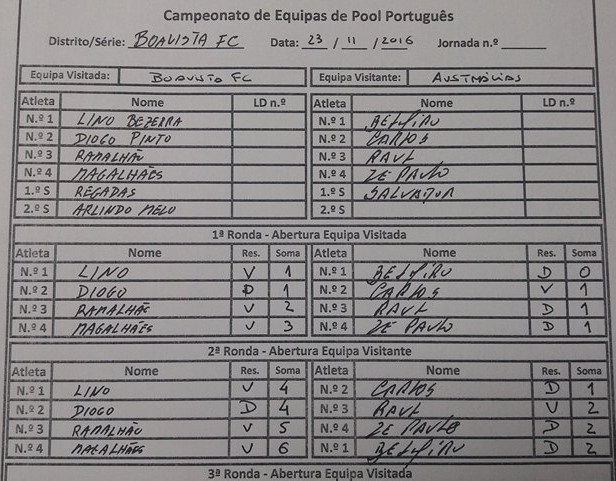 Campeonato de Equipas de Pool Português
Distrito/Série: BOAVISTA FC Data: 23 / 11 / 2016 Jornada n.º
Equipa Visitada: BOAVISTA FC Equipa Visitante:
Atleta Nome LD n.º Atleta Nome LD n.º
N.º 1 LINO BEZERRA N.º 1 BELMIRO
N.º 2 DIOGO PINTO N.º 2 CARLOS
N.º 3 RAMALHÃO N.º 3 RAUL
N.º 4 MAGALHÃES N.º 4 ZE PAULO
1.º S REGADAS 1.º S SALVATOR
2.º S ARLINDO MELO 2.º S
1ª Ronda - Abertura Equipa Visitada
Atleta Nome Res. Soma Atleta Nome Res. Soma
N.º 1 LINO V 1 N.º 1 BELMIRO D 0
N.º 2 DIOGO D 1 N.º 2 CARLOS V 1
N.º 3 RAMALHÃO V 2 N.º 3 RAUL D 1
N.º 4 MAGALHÃES V 3 N.º 4 ZE PAULO D 1
2ª Ronda - Abertura Equipa Visitante
Atleta Nome Res. Soma Atleta Nome Res. Soma
N.º 1 LINO V 4 N.º 2 CARLOS D 1
N.º 2 DIOGO D 4 N.º 3 RAUL V 2
N.º 3 RAMALHÃO V 5 N.º 4 ZE PAULO D 2
N.º 4 MAGALHÃES V 6 N.º 1 BELMIRO D 2
3ª Ronda - Abertura Equipa Visitada